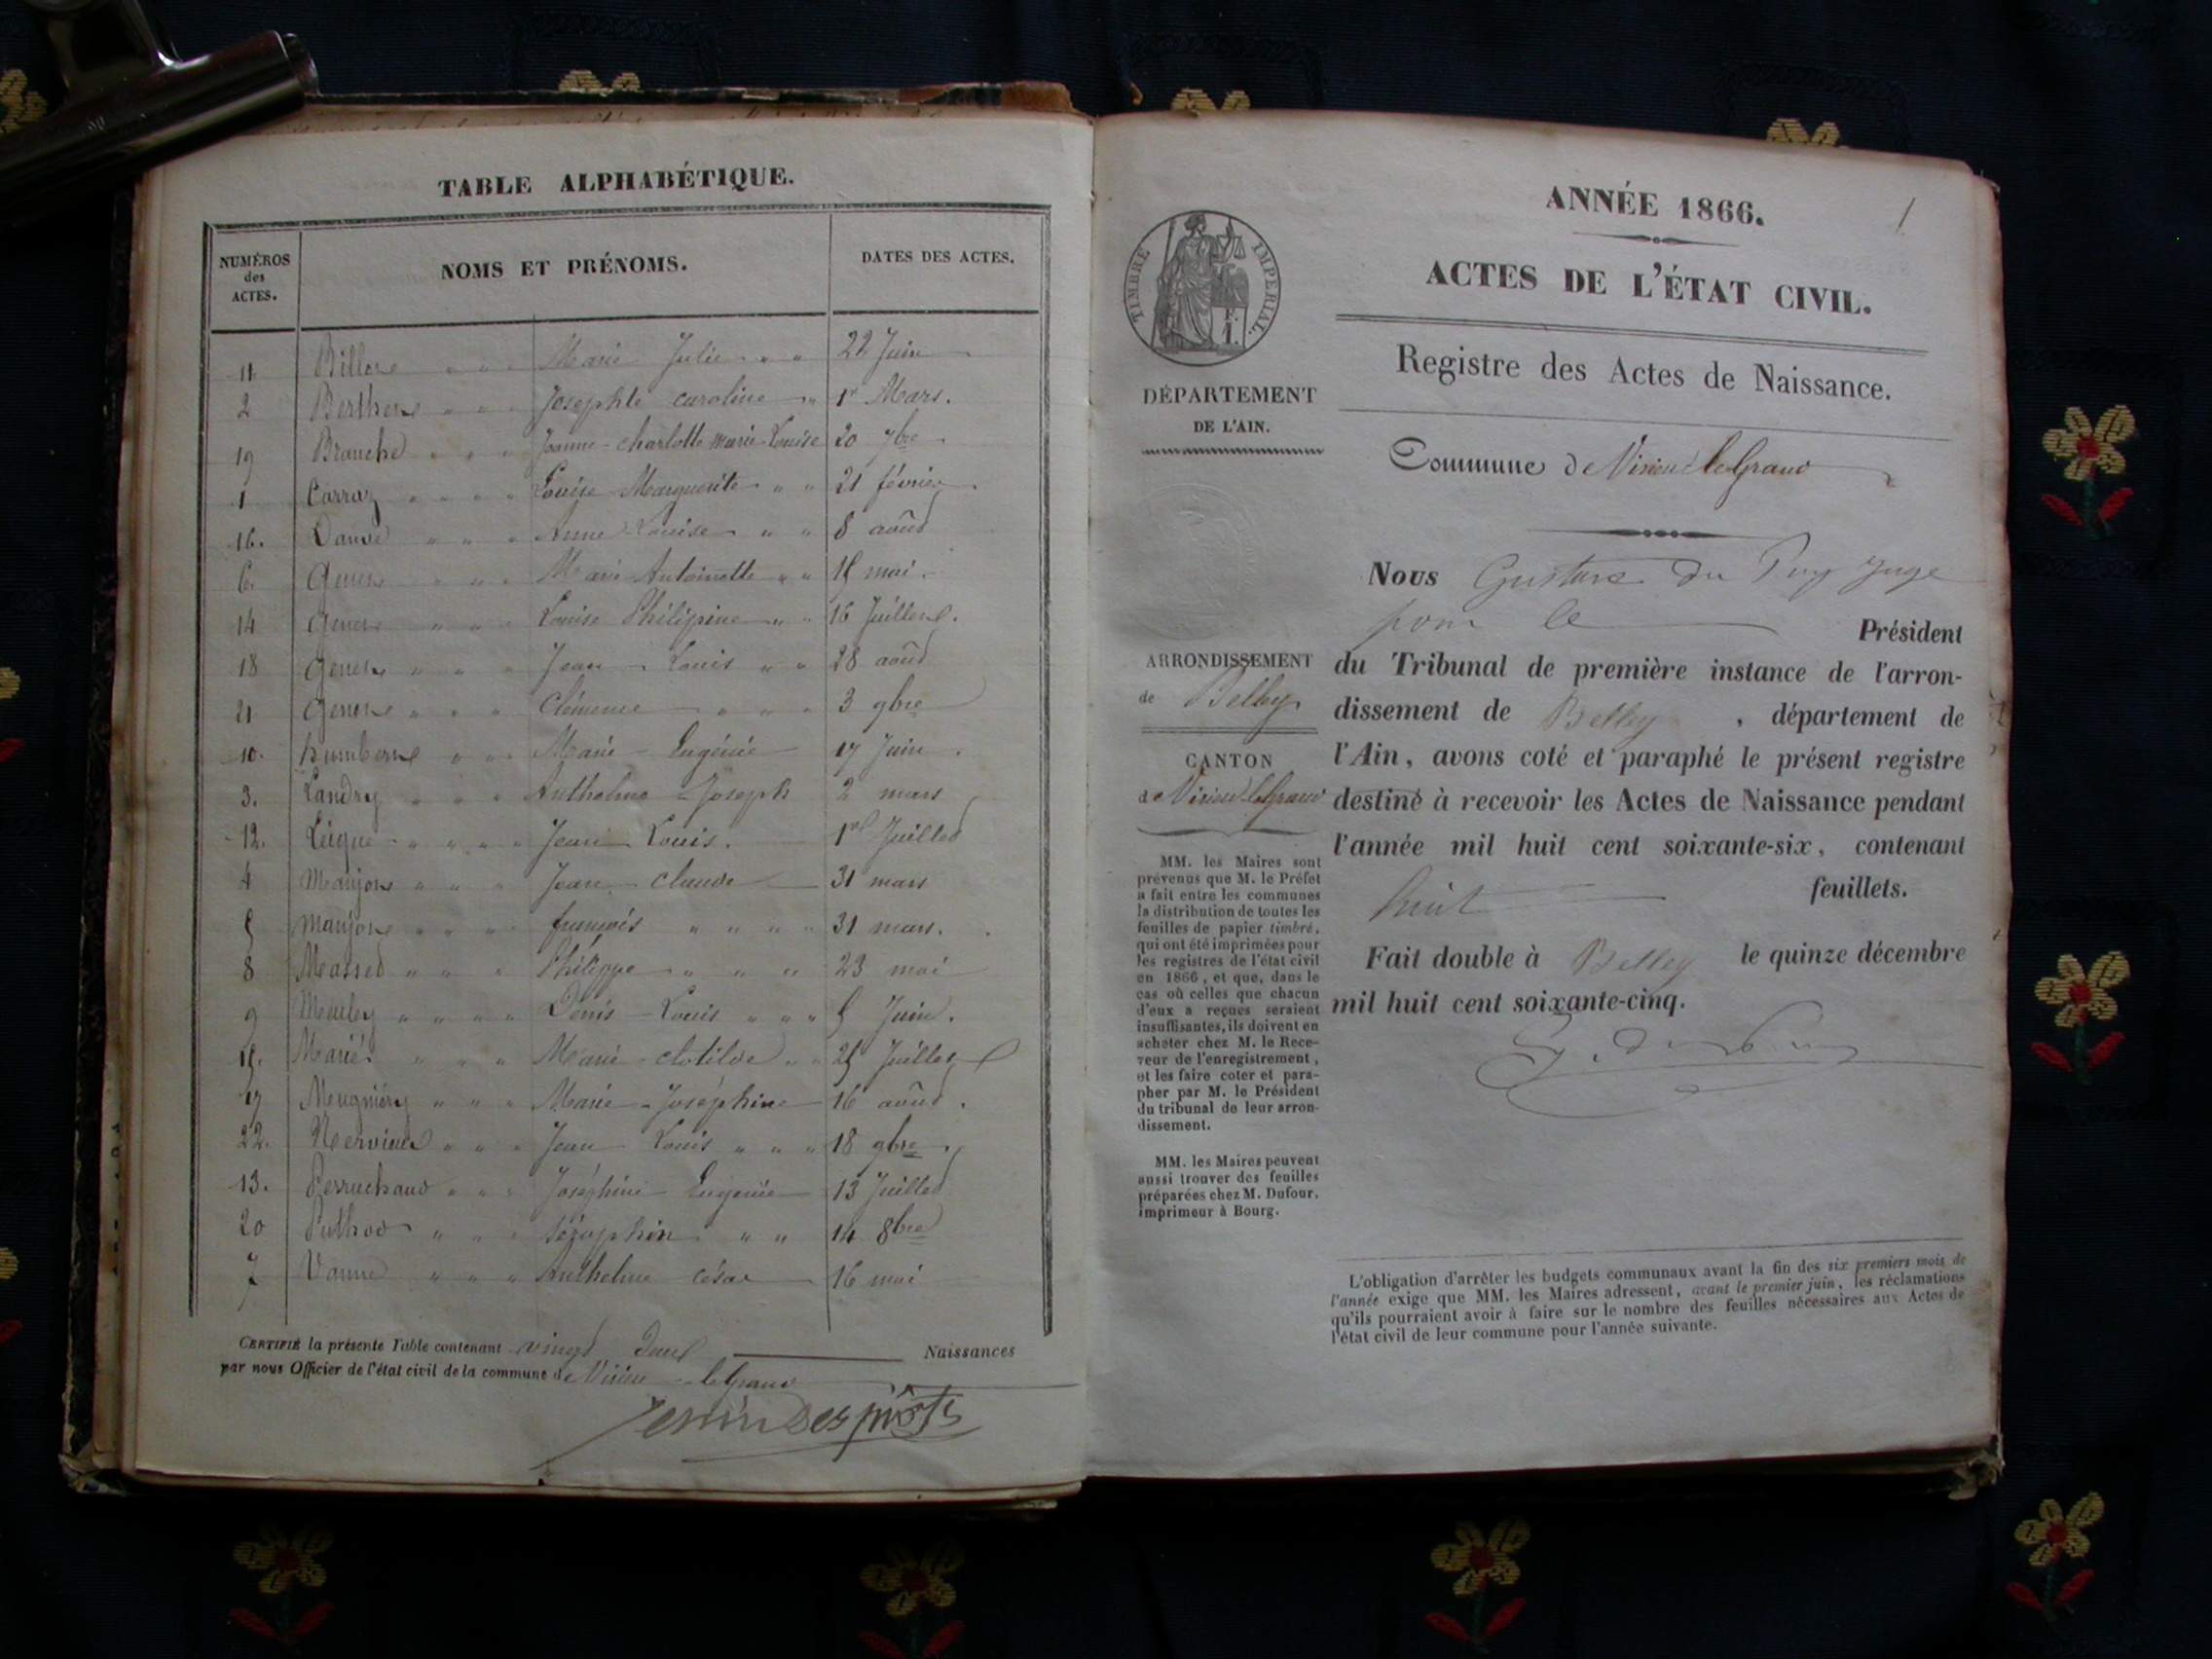 TABLE ALPHABÉTIQUE.
NUMÉROS des ACTES. NOMS ET PRÉNOMS. DATES DES ACTES.
11 Marie Julie 22 Juin
2 Josephte caroline 1er Mars.
19 Branche Jeanne-charlotte marie-Louise 20 7bre
1 Carraz Louise Marguerite 21 février
16. Anne Louise 8 aoûd
6. Marie Antoinette mai.
14 Louise Philipine 16
18 Jean Louis 28 aoûd
21 Clémence 3 9bre
10. Marie Eugénie 17 Juin.
3. Landry Anthelme Joseph 2 mars
12. Jean Louis. Juilled
4 Jean claude 31 mars
5 françois 31 mars.
8 Massed Philippe 23 mai
9 Denis Louis 5 Juin.
Marie clotilde
17 Meugniéry Marie-Joséphine 16 aoûd.
22. Jean Louis 18 9bre
13. Perruchaud Joséphine Eugénie 13 Juilled
20 Puthod Séraphin 14 8bre
7 Anthelme césar 16 mai
CERTIFIÉ la présente Table contenant vingd Deux Naissances
par nous Officier de l'état civil de la commune de Virieu-le Grand
ANNÉE 1866.
1
ACTES DE L'ÉTAT CIVIL.
Registre des Actes de Naissance.
Commune de Virieu le Grand
TIMBRE IMPERIAL.
F. 1.
DÉPARTEMENT
DE L'AIN.
ARRONDISSEMENT
de Belley
CANTON
de Virieu le Grand
MM. les Maires sont
prévenus que M. le Préfet
a fait entre les communes
la distribution de toutes les
feuilles de papier timbré,
qui ont été imprimées pour
les registres de l'état civil
en 1866, et que, dans le
cas où celles que chacun
d'eux a reçues seraient
insuffisantes, ils doivent en
acheter chez M. le Rece-
veur de l'enregistrement,
et les faire coter et para-
pher par M. le Président
du tribunal de leur arron-
dissement.
MM. les Maires peuvent
aussi trouver des feuilles
préparées chez M. Dufour,
imprimeur à Bourg.
Nous Gustave du Puy Juge
pour le Président
du Tribunal de première instance de l'arron-
dissement de Belley, département de
l'Ain, avons coté et paraphé le présent registre
destiné à recevoir les Actes de Naissance pendant
l'année mil huit cent soixante-six, contenant
huit feuillets.
Fait double à Belley le quinze décembre
mil huit cent soixante-cinq.
L'obligation d'arrêter les budgets communaux avant la fin des six premiers mois de
l'année exige que MM. les Maires adressent, avant le premier juin, les réclamations
qu'ils pourraient avoir à faire sur le nombre des feuilles nécessaires aux Actes de
l'état civil de leur commune pour l'année suivante.